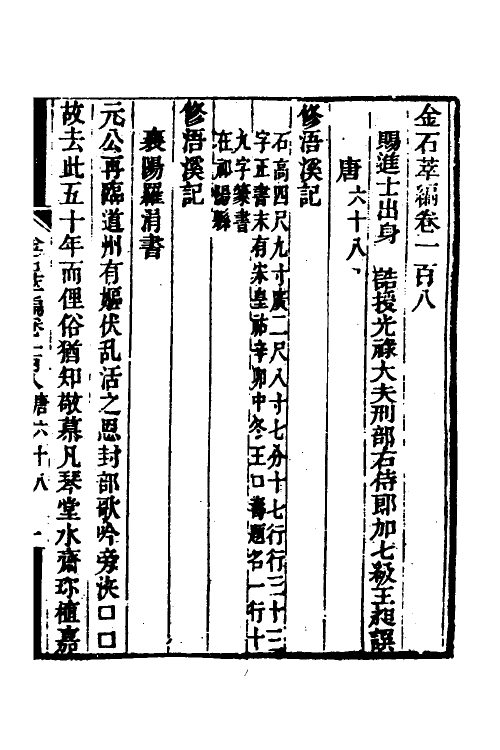 金石萃編卷一百八
賜進士出身 誥授光祿大夫刑部右侍郎加七級王昶譔
唐六十八
修浯溪記
石高四尺九寸廣二尺八寸七分十七行行三十三
字正書末有宋皇祐辛卯中冬王口壽題名一行十
九字篆書
在祁陽縣
修浯溪記
襄陽羅涓書
元公再臨道州有嫗伏亂活之恩封部歌吟旁浹口口
故去此五十年而俚俗猶知敬慕凡琴堂水齋珍植嘉
金石萃編卷一百八 唐六十八 一